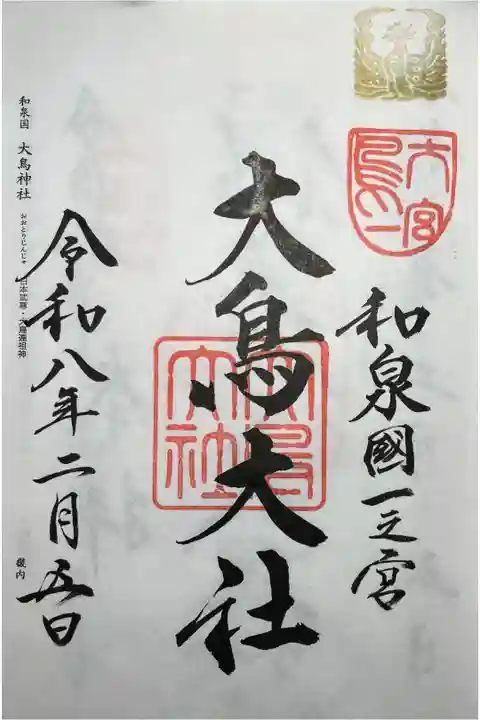 和泉國一之宮
大鳥大社
令和八年二月五日
和泉国 大鳥神社 おおとりじんじゃ 日本武尊・大鳥連祖神
畿内
大鳥大社